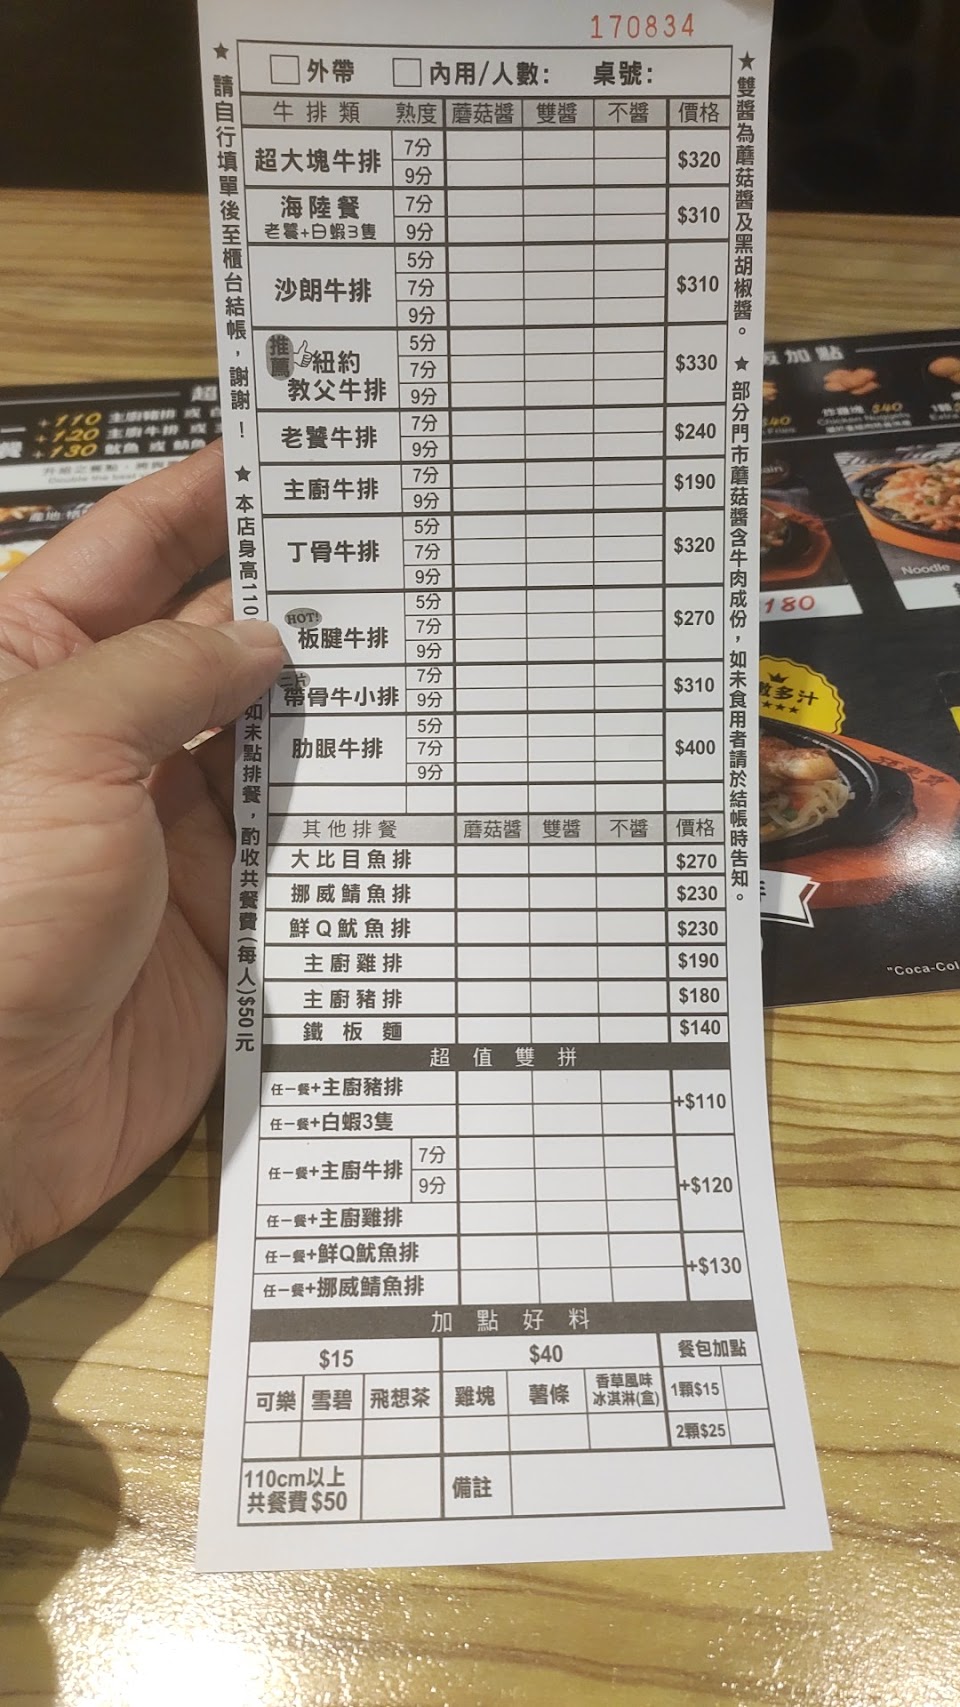 170834
外帶 內用/人數: 桌號:
牛排類 熟度 蘑菇醬 雙醬 不醬 價格
超大塊牛排 7分 9分 $320
海陸餐 老饕+白蝦3隻 7分 9分 $310
沙朗牛排 5分 7分 9分 $310
推薦 紐約教父牛排 5分 7分 9分 $330
老饕牛排 7分 9分 $240
主廚牛排 7分 9分 $190
丁骨牛排 5分 7分 9分 $320
HOT! 板腱牛排 5分 7分 9分 $270
二片 帶骨牛小排 7分 9分 $310
肋眼牛排 5分 7分 9分 $400
其他排餐 蘑菇醬 雙醬 不醬 價格
大比目魚排 $270
挪威鯖魚排 $230
鮮Q魷魚排 $230
主廚雞排 $190
主廚豬排 $180
鐵板麵 $140
超值雙拼
任一餐+主廚豬排 +$110
任一餐+白蝦3隻
任一餐+主廚牛排 7分 9分 +$120
任一餐+主廚雞排
任一餐+鮮Q魷魚排 +$130
任一餐+挪威鯖魚排
加點好料
$15 $40 餐包加點
可樂 雪碧 飛想茶 雞塊 薯條 香草風味冰淇淋(盒) 1顆$15
2顆$25
110cm以上
共餐費$50 備註
★請自行填單後至櫃台結帳，謝謝！ ★本店身高110 如未點排餐，酌收共餐費(每人)$50元
★雙醬為蘑菇醬及黑胡椒醬。 ★部分門市蘑菇醬含牛肉成份，如未食用者請於結帳時告知。
+110 主廚豬排 或
+120 主廚牛排 或
+130 魷魚 或
加點
炸雞塊 $40
Chicken Nuggets
Noodle
180
多汁
"Coca-Col